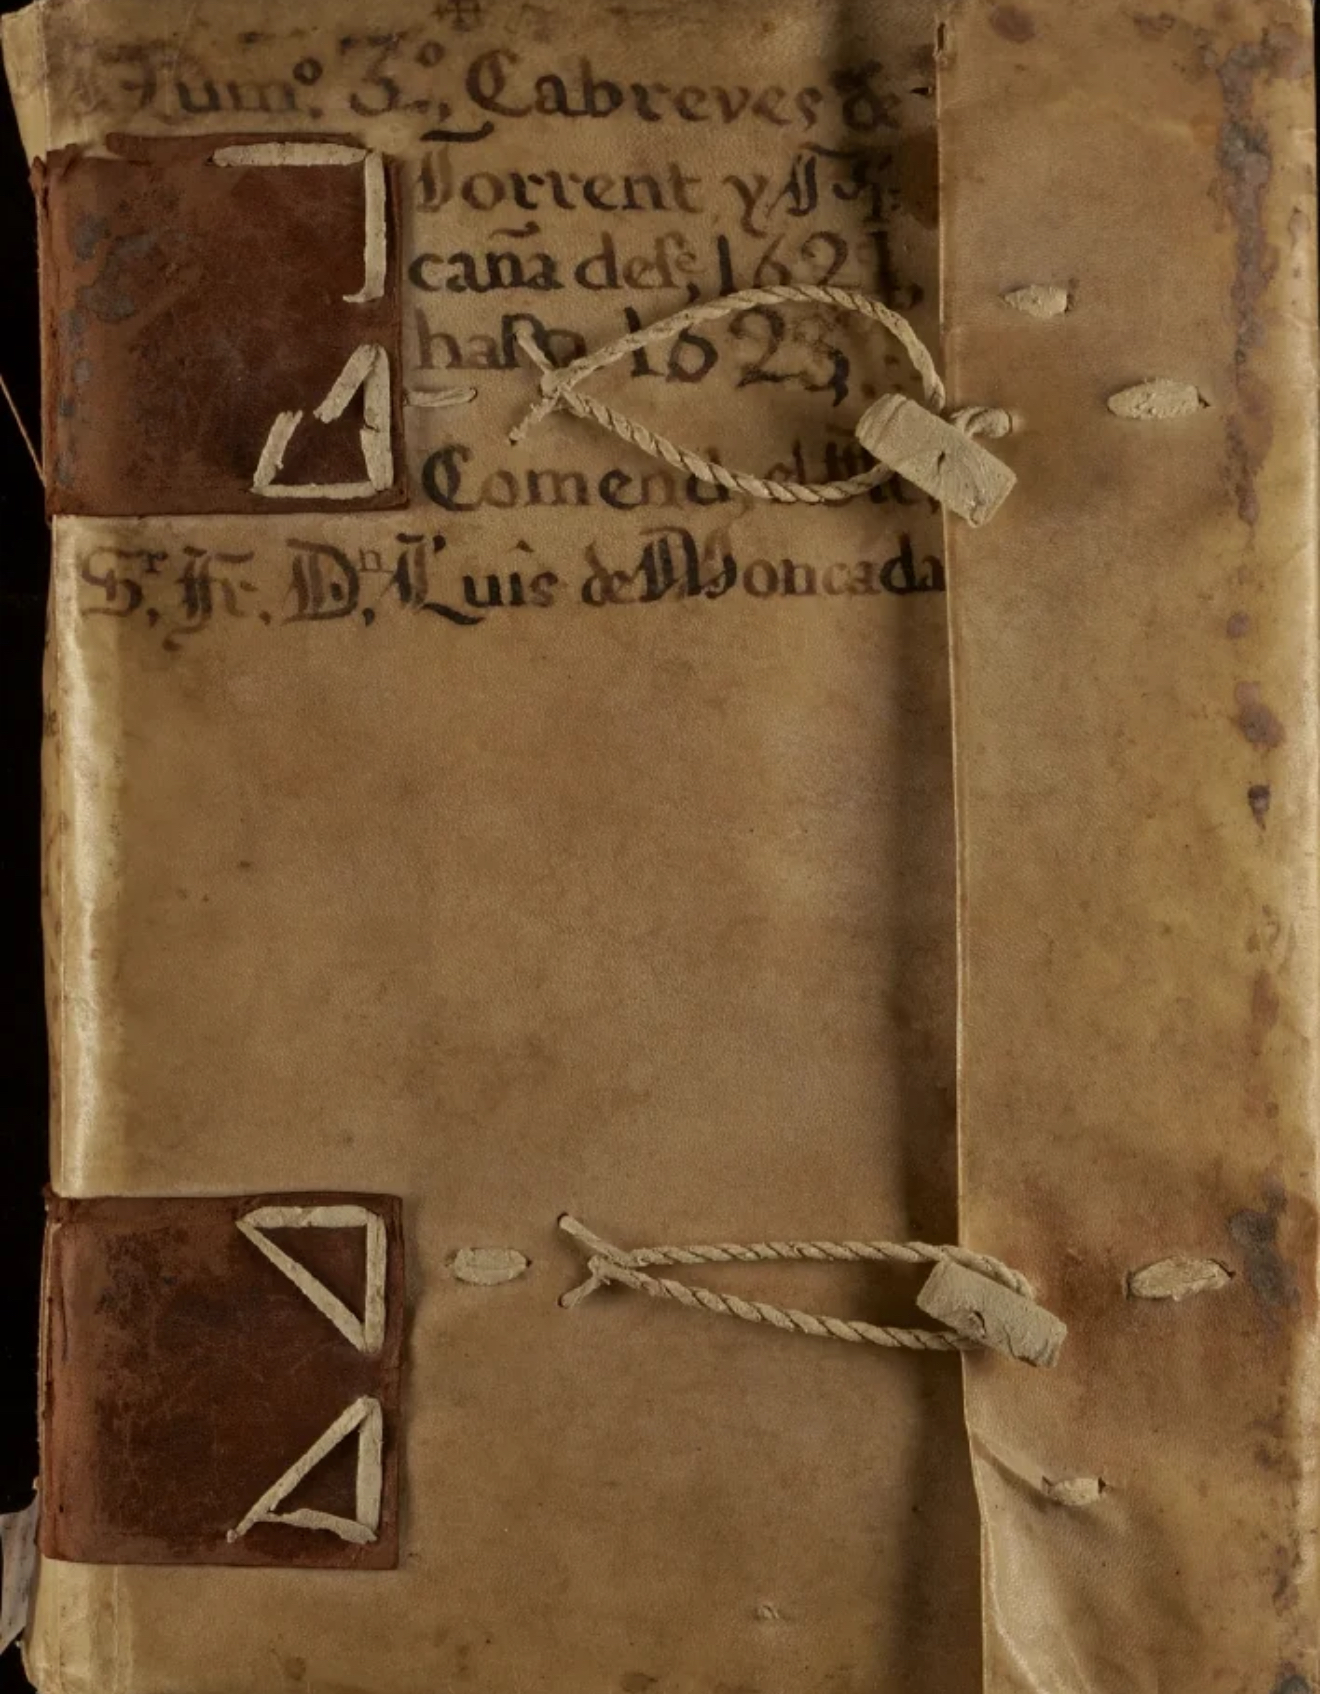 Numº. 3º, Cabreves de
Torrent y Pi
caña desᵉ, 1621,
hasta 1625,
Comendʳ, el
Sʳ, Fr. Dⁿ, Luis de Moncada